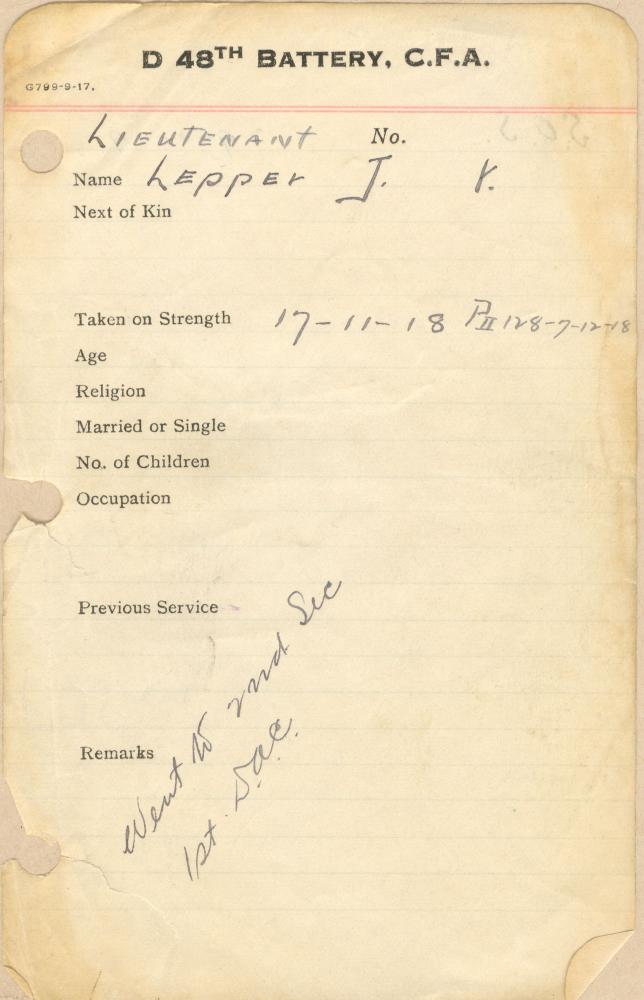 D 48TH BATTERY, C.F.A.
G799-9-17.
LIEUTENANT No.
Name Lepper J. V.
Next of Kin
Taken on Strength 17-11-18 PII 128-7-12-18
Age
Religion
Married or Single
No. of Children
Occupation
Previous Service
Remarks
Went to 2nd Sec
1st. D.A.C.